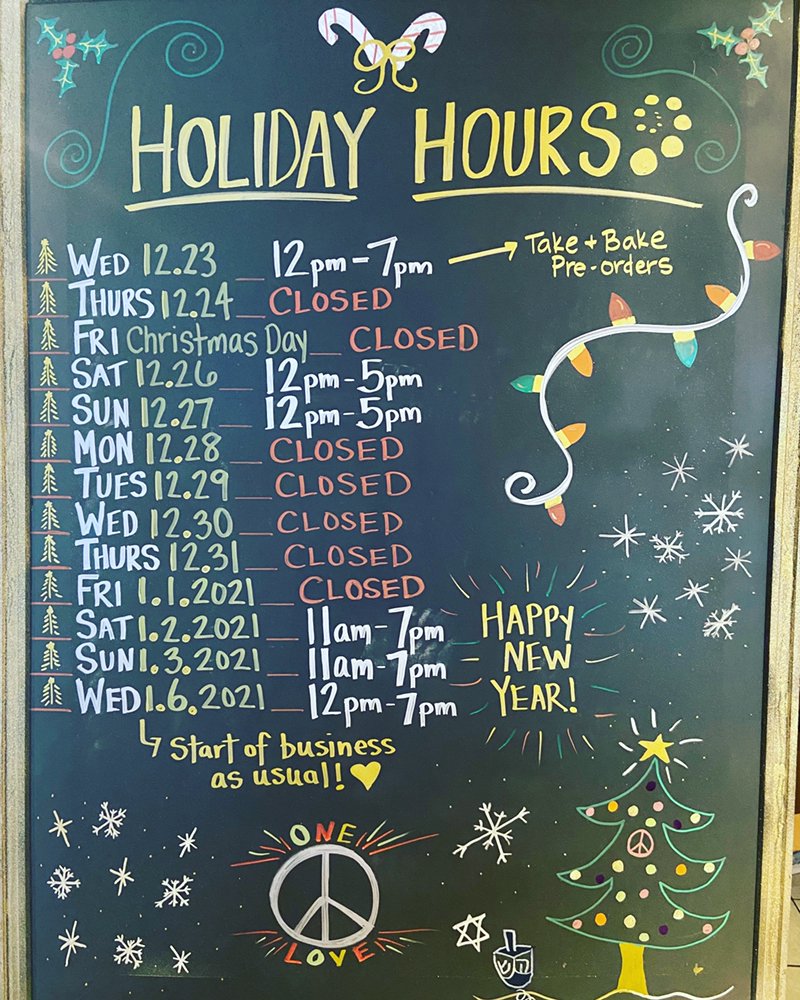 HOLIDAY HOURS
WED 12.23 _ 12pm-7pm → Take + Bake
Pre-orders
THURS 12.24 _ CLOSED
FRI Christmas Day _ CLOSED
SAT 12.26 _ 12pm-5pm
SUN 12.27 _ 12pm-5pm
MON 12.28 _ CLOSED
TUES 12.29 _ CLOSED
WED 12.30 _ CLOSED
THURS 12.31 _ CLOSED
FRI 1.1.2021 _ CLOSED
SAT 1.2.2021 _ 11am-7pm
SUN 1.3.2021 _ 11am-7pm
WED 1.6.2021 _ 12pm-7pm
HAPPY
NEW
YEAR!
↳ Start of business
as usual! ♥
ONE
LOVE